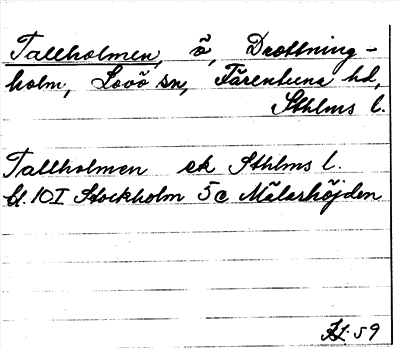 Tallholmen, ö, Drottning-
holm, Lovö sn, Färentuna hd,
Sthlms l.
Tallholmen ek Sthlms l.
bl. 10I Stockholm 5c Mälarhöjden
59